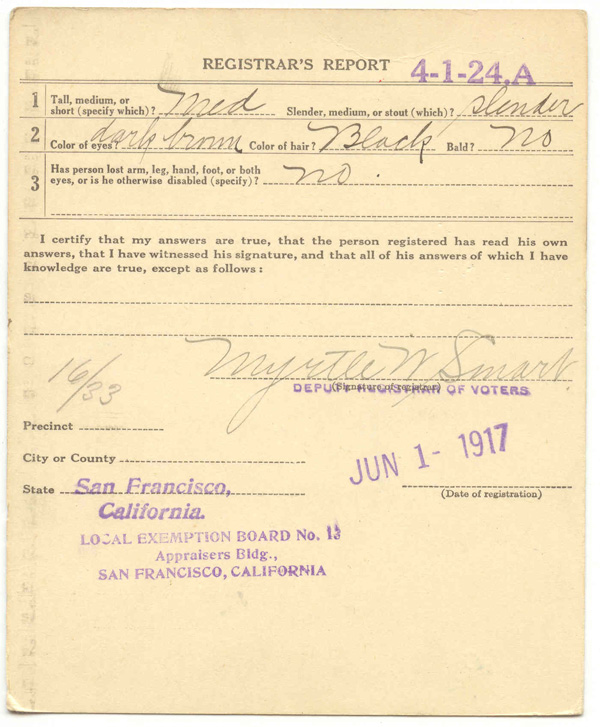 REGISTRAR'S REPORT 4-1-24.A
1 Tall, medium, or short (specify which)? Med Slender, medium, or stout (which)? slender
2 Color of eyes? dark brown Color of hair? Black Bald? No
3 Has person lost arm, leg, hand, foot, or both eyes, or is he otherwise disabled (specify)? no.
I certify that my answers are true, that the person registered has read his own
answers, that I have witnessed his signature, and that all of his answers of which I have
knowledge are true, except as follows:
Myrtle W. Smart
16/33
(Signature of registrar)
DEPUTY REGISTRAR OF VOTERS
Precinct
City or County
JUN 1- 1917
State San Francisco,
(Date of registration)
California.
LOCAL EXEMPTION BOARD No. 13
Appraisers Bldg.,
SAN FRANCISCO, CALIFORNIA